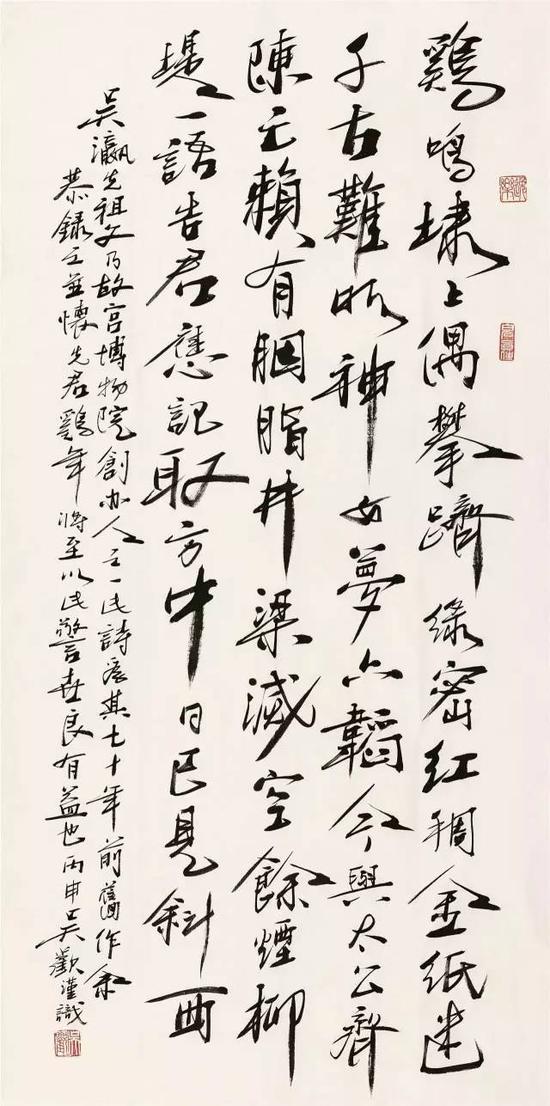 鷄鳴埭上偶攀躋綠密紅稠金紙迷
古難神女夢六韜今與太公齊
陳亡賴有胭脂井梁滅空餘煙柳
堤一語告君應記取方中日已見斜西
吳瀛先祖父乃故宮博物院創办人之一此詩為其七十年前舊作余
恭録之並懷先君鷄年將至以此警世良有益也丙申吳歡謹識